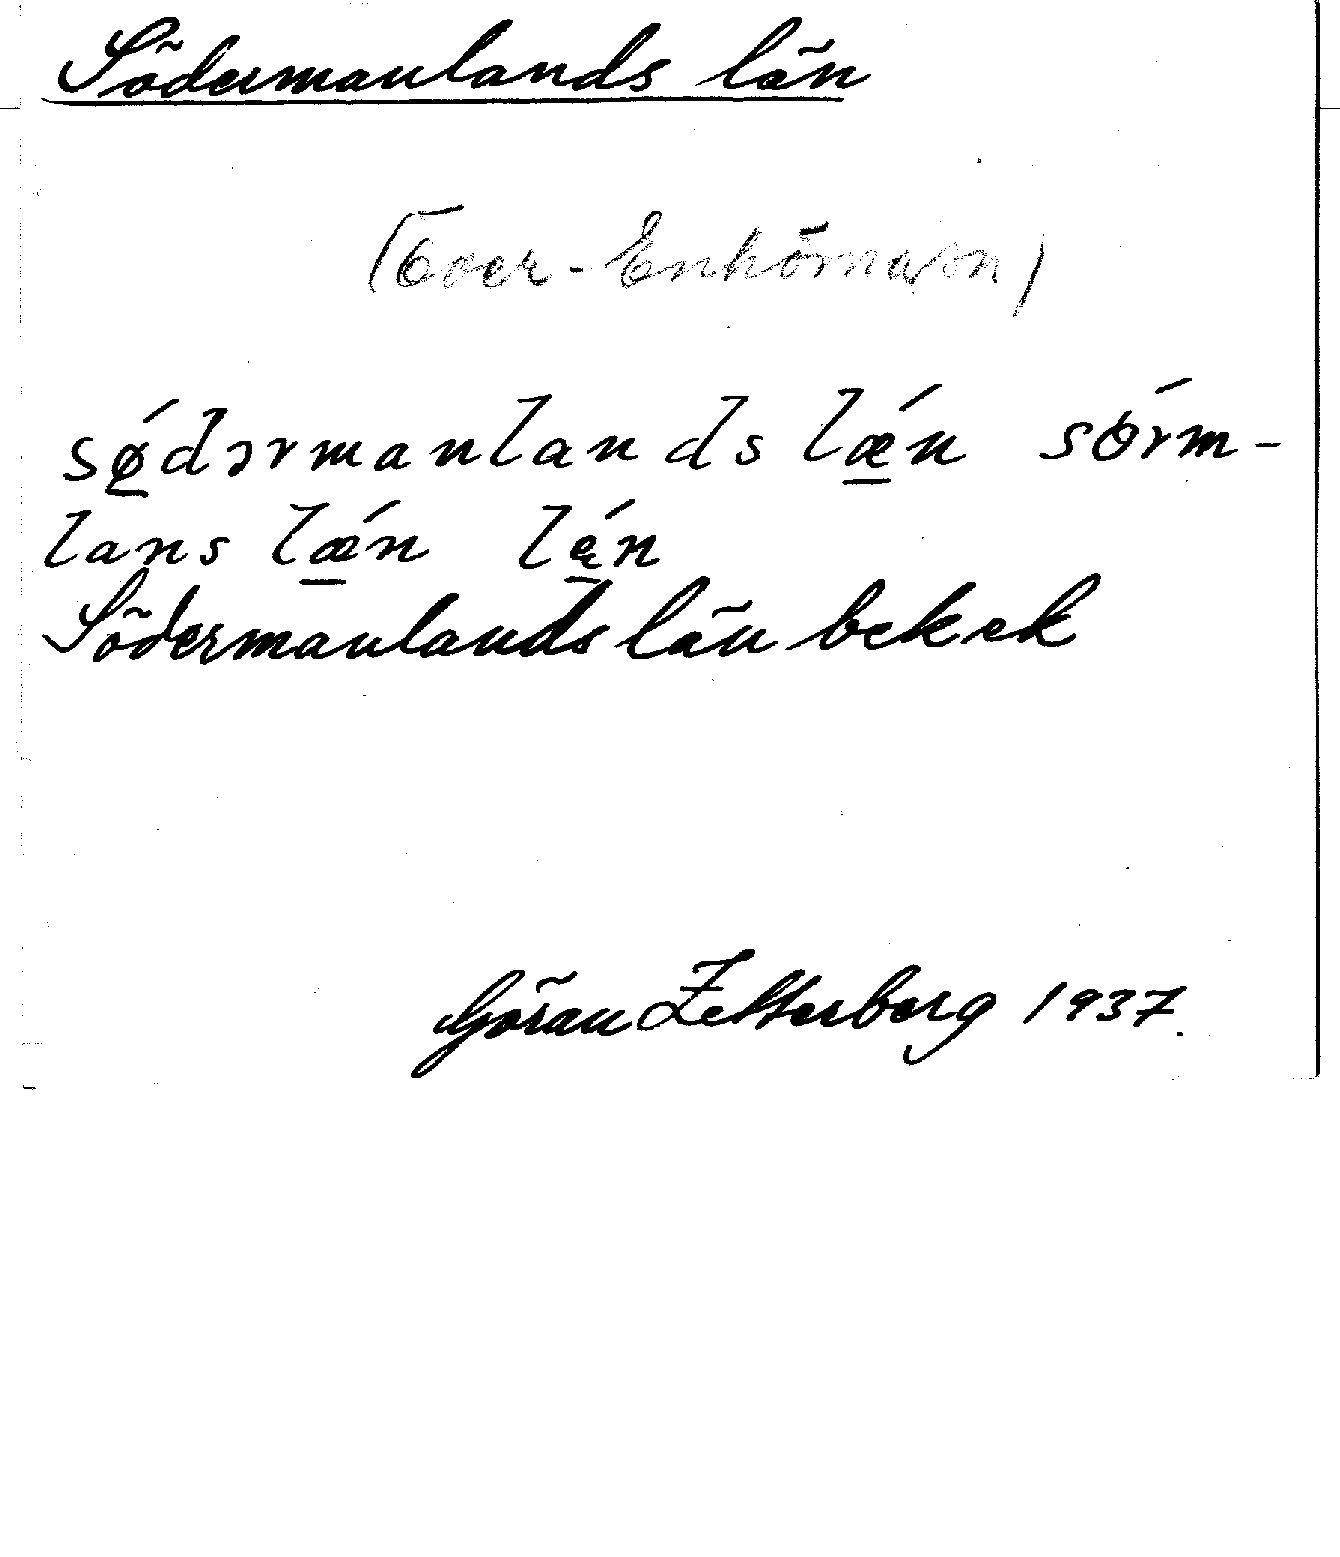 Södermanlands län
(Över-Enhörna sn)
sǿdərmanlands lǽn sörm-
lans lǽn lę́n
Södermanlands län bek ek
Göran Zetterberg 1937.